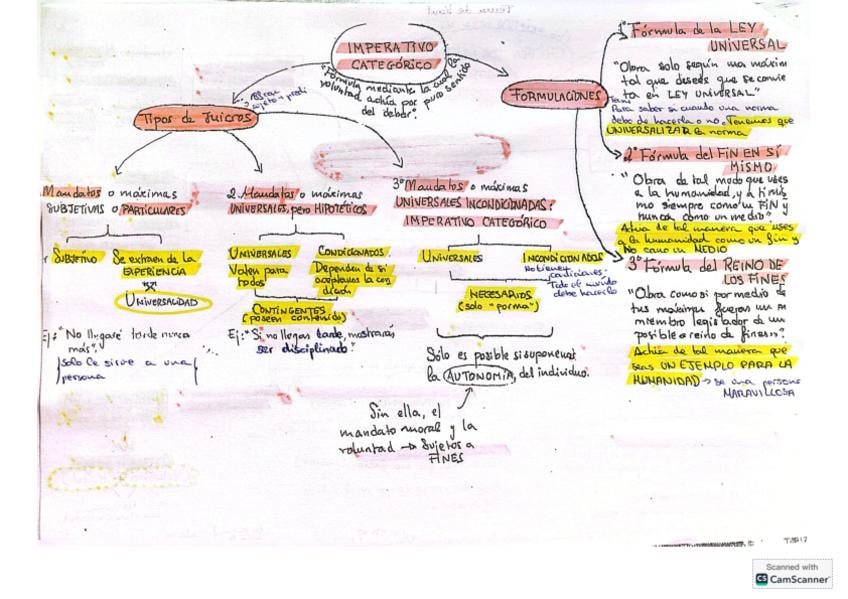 IMPERATIVO
CATEGÓRICO
"Fórmula mediante la cual la
voluntad actúa por puro sentido
del deber"
Tipos de Juicios
FORMULACIONES
1ª Fórmula de la LEY
UNIVERSAL
"Obra solo según una máxim
tal que desees que se convie
ta en LEY UNIVERSAL"
Para saber si cuando una norma
debo de hacerla o no. Tenemos que
UNIVERSALIZAR la norma
2ª Fórmula del FIN EN SÍ
MISMO
"Obra de tal modo que uses
a la humanidad, y a ti mis
mo siempre como un FIN y
nunca como un medio".
Actua de tal manera que uses
a la humanidad como un fin y
No como un MEDIO
3ª Fórmula del REINO DE
LOS FINES
"Obra como si por medio de
tus máximas fueras un
miembro legislador de un
posible reino de fines".
Actúa de tal manera que
seas UN EJEMPLO PARA LA
HUMANIDAD → se una persona
MARAVILLOSA
Mandatos o máximas
SUBJETIVAS o PARTICULARES
SUBJETIVO
Se extraen de la
EXPERIENCIA
UNIVERSALIDAD
Ej: "No llegaré tarde nunca
más".
solo le sirve a una
persona
2. Mandatos o máximas
UNIVERSALES, pero HIPOTÉTICOS
UNIVERSALES
Valen para
todos
CONDICIONADOS.
Dependen de si
aceptamos la con
dición
CONTINGENTES
(poseen contenido)
Ej: "Si no llegas tarde, mostrarás
ser disciplinado"
3º Mandatos o máximas
UNIVERSALES INCONDICIONADAS:
IMPERATIVO CATEGÓRICO
UNIVERSALES
INCONDICIONADOS
No tienen
condiciones.
Todo el mundo
debe hacerlo
NECESARIOS
(solo "forma")
Sólo es posible si suponemos
la AUTONOMÍA, del individuo.
Sin ella, el
mandato moral y la
voluntad → Sujetos a
FINES
Scanned with
CS CamScanner